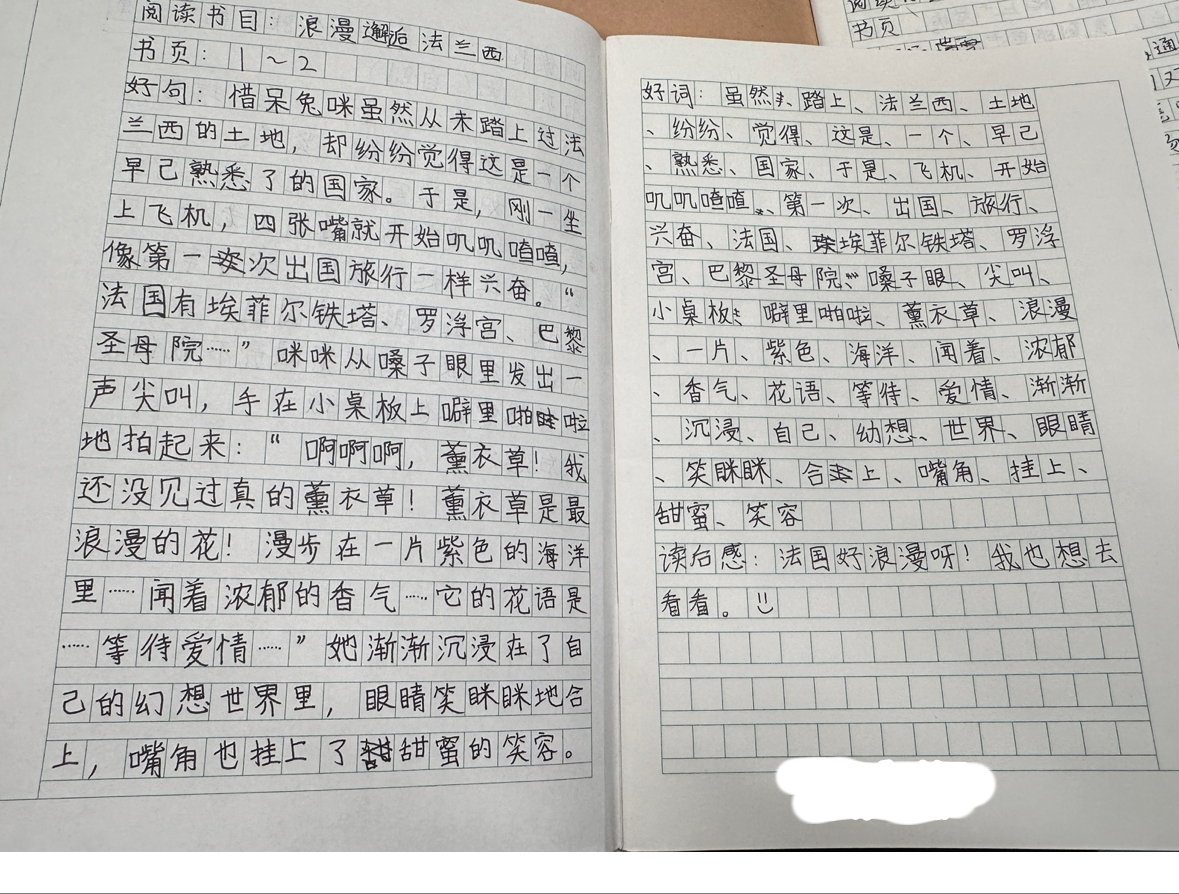 阅读书目：浪漫邂逅法兰西
书页：1～2
好句：借呆兔咪虽然从未踏上过法
兰西的土地，却纷纷觉得这是一个
早已熟悉了的国家。于是，刚一坐
上飞机，四张嘴就开始叽叽喳喳，
像第一次出国旅行一样兴奋。“
法国有埃菲尔铁塔、罗浮宫、巴黎
圣母院……”咪咪从嗓子眼里发出一
声尖叫，手在小桌板上噼里啪啦
地拍起来：“啊啊啊，薰衣草！我
还没见过真的薰衣草！薰衣草是最
浪漫的花！漫步在一片紫色的海洋
里……闻着浓郁的香气……它的花语是
……等待爱情……”她渐渐沉浸在了自
己的幻想世界里，眼睛笑眯眯地合
上，嘴角也挂上了甜蜜的笑容。
好词：虽然、踏上、法兰西、土地
、纷纷、觉得、这是、一个、早已
、熟悉、国家、于是、飞机、开始
叽叽喳喳、第一次、出国、旅行、
兴奋、法国、埃菲尔铁塔、罗浮
宫、巴黎圣母院、嗓子眼、尖叫、
小桌板、噼里啪啦、薰衣草、浪漫
、一片、紫色、海洋、闻着、浓郁
、香气、花语、等待、爱情、渐渐
、沉浸、自己、幼想、世界、眼睛
、笑眯眯、合上、嘴角、挂上、
甜蜜、笑容
读后感：法国好浪漫呀！我也想去
看看。
书页